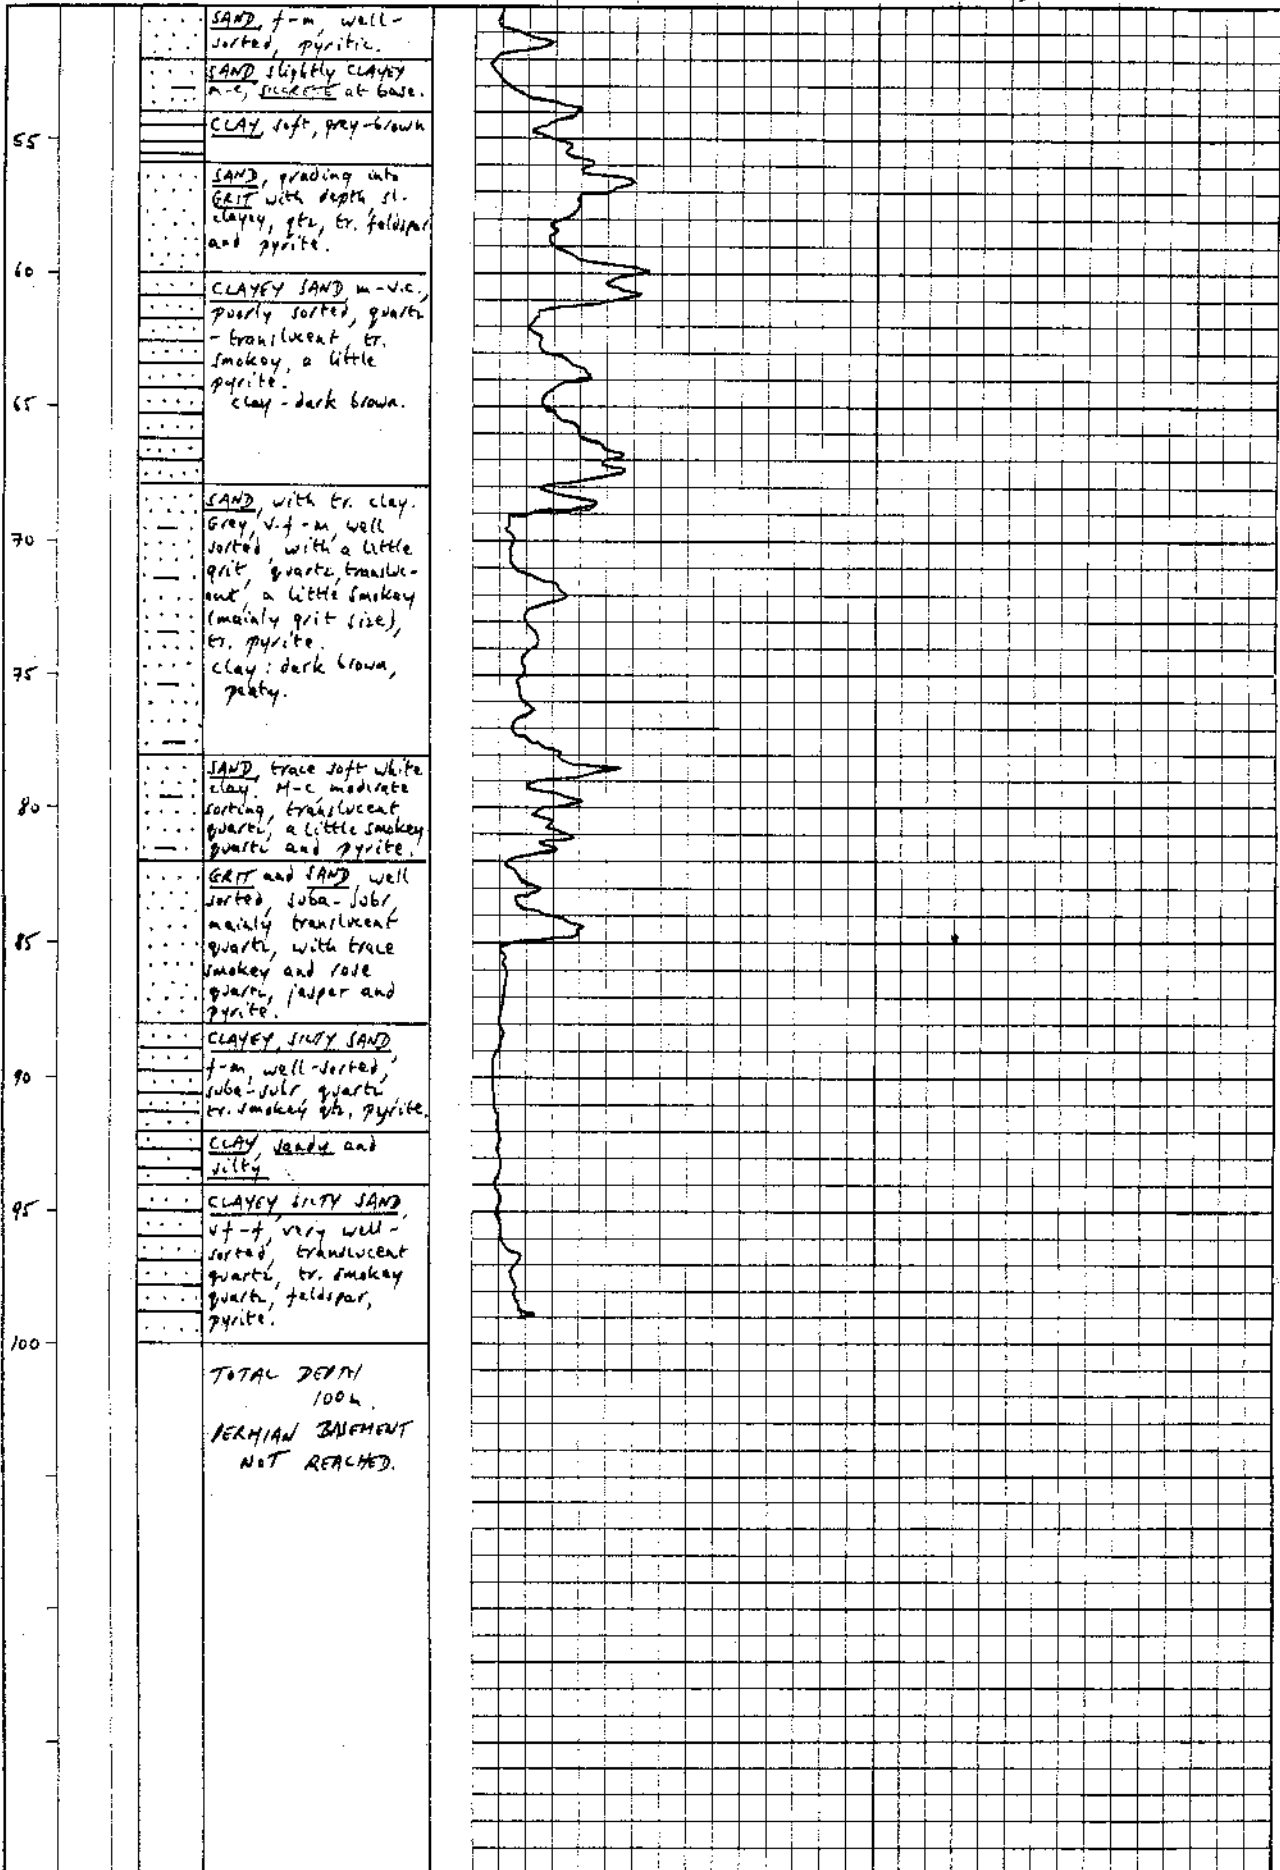 SAND, f-m, well-
sorted, pyritic.
SAND slightly CLAYEY
m-c, SILCRETE at base.
CLAY, soft, grey-brown
55
SAND, grading into
GRIT with depth, sl.
clayey, qtz, tr. feldspar
and pyrite.
60
CLAYEY SAND, m-v.c.,
poorly sorted, quartz
- translucent, tr.
smokey, a little
pyrite.
clay - dark brown.
65
SAND, with tr. clay.
Grey, v.f-m, well
sorted, with a little
grit, quartz, transluc-
ent, a little smokey
(mainly grit size),
tr. pyrite.
clay: dark brown,
peaty.
70
75
SAND, trace soft white
clay. M-c, moderate
sorting, translucent
quartz, a little smokey
quartz and pyrite.
80
GRIT and SAND, well
sorted, suba-subr,
mainly translucent
quartz, with trace
smokey and rose
quartz, jasper and
pyrite.
85
CLAYEY, SILTY SAND
f-m, well-sorted,
suba-subr, quartz
tr. smokey qtz, pyrite.
90
CLAY, sandy and
silty
CLAYEY SILTY SAND
vf-f, very well-
sorted, translucent
quartz, tr. smokey
quartz, feldspar,
pyrite.
95
100
TOTAL DEPTH
100m.
PERMIAN BASEMENT
NOT REACHED.